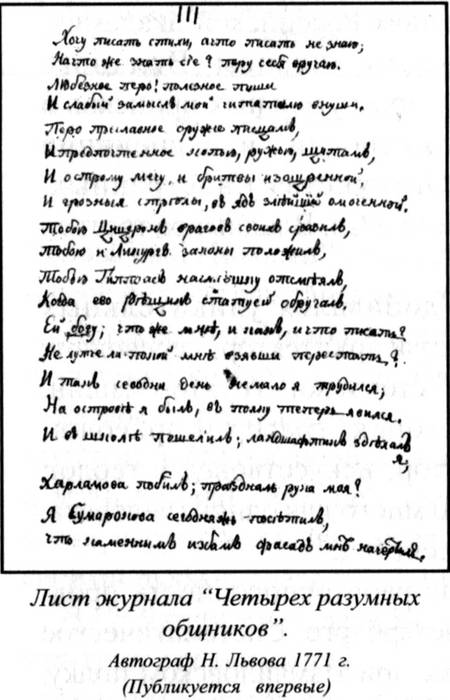 III
Хочу писать стихи, а что писать не знаю;
На что же знать сіе? перу себя вручаю.
Любезное перо! полезное пиши
И слабый замыслъ мой читателю внуши.
Перо преславное оружье пищалъ,
И предпочтенное копью, ружью, щитамъ,
И острому мечу и бритвы изощренной,
И грозныя стрелы, въ ядъ змѣиный омоченной.
Тобою Цицеронъ враговъ своихъ сразилъ,
Тобою и Ликургъ законы положилъ,
Тобою насмѣшку отсмѣялъ,
Когда его статуей обручалъ,
Ей богу; что же мнѣ, и какъ, и что писать?
Не лучше ли мнѣ взявши перестать?
И такъ севодни день немало я трудился;
На островѣ я былъ, въ полку теперь явился.
И въ школѣ пошелилъ; ландшафтикъ здѣлалъ
я,
Харламова побилъ; праздналь рука моя?
Я Сумарокова севодняжь посѣтилъ,
Что каменнымъ избамъ фасадъ мнѣ начертилъ.
Лист журнала “Четырех разумных
общников”.
Автограф Н. Львова 1771 г.
(Публикуется впервые)